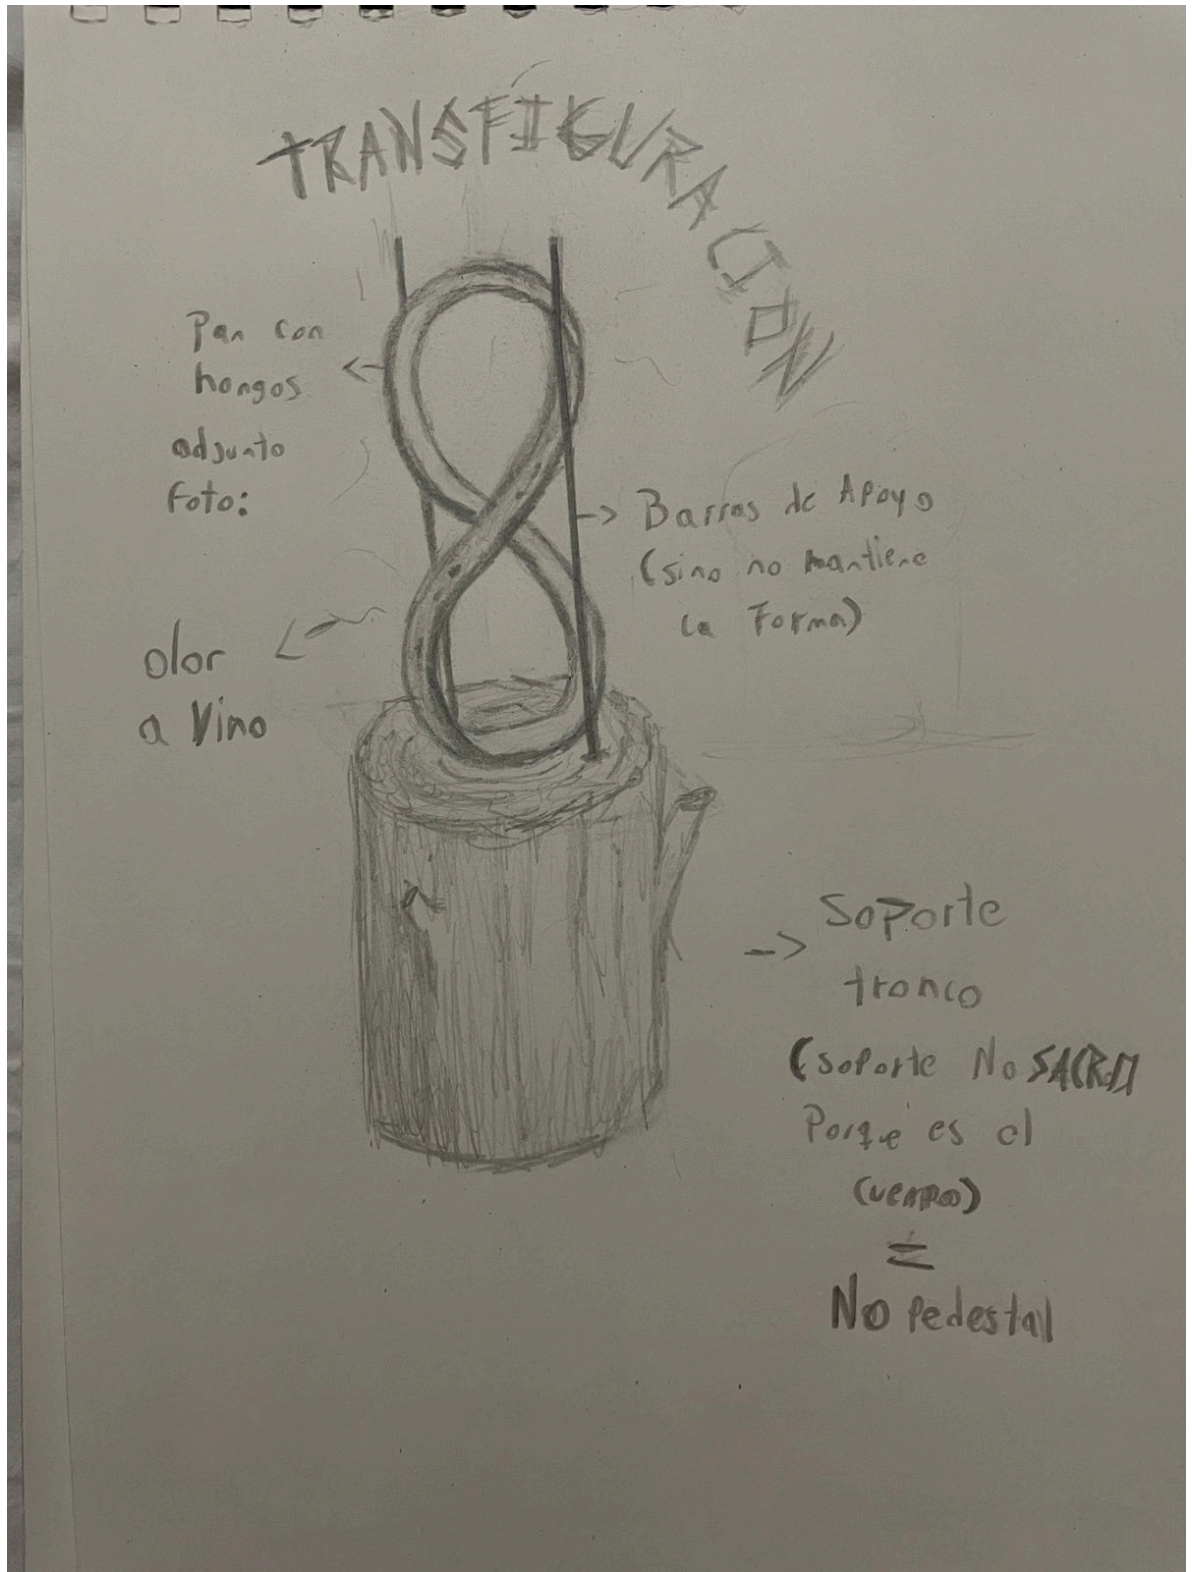 TRANSFIGURACION
Pan con
hongos
adjunto
foto:
Barras de Apoyo
(sino no mantiene
la Forma)
olor
a Vino
Soporte
tronco
(soporte No SACRO
Porque es el
cuerpo)
=
No Pedestal